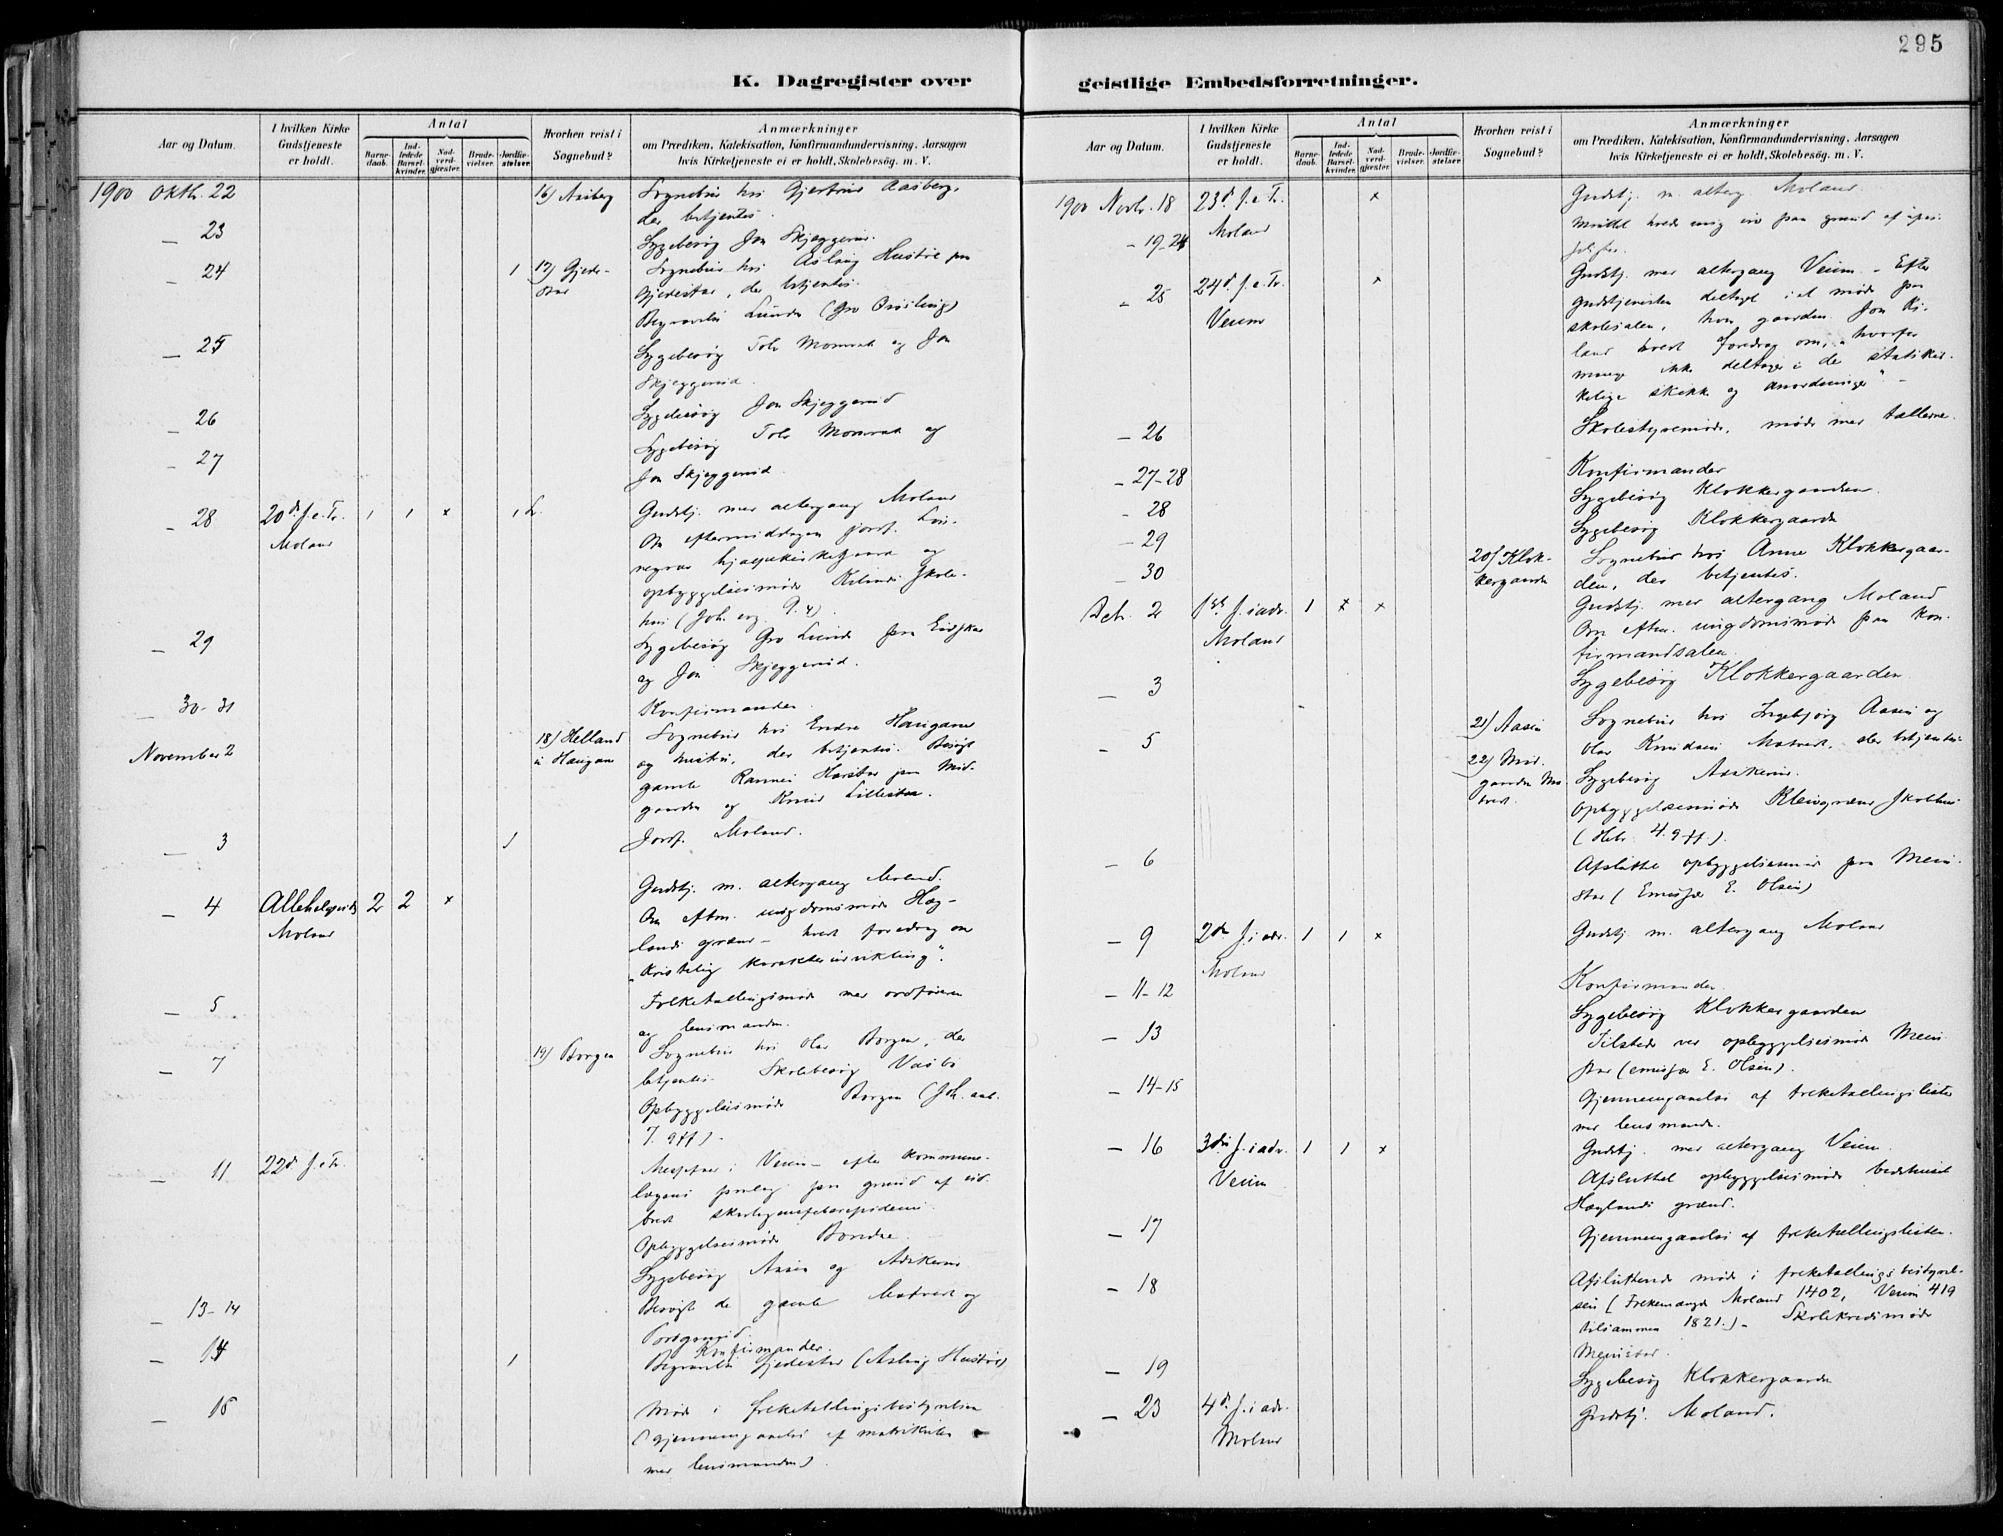 295
K. Dagregister over geistlige Embedsforretninger.
Aar og Datum.
I hvilken Kirke Gudstjeneste er holdt.
Antal
Barnedaab.
Indledede Barselkvinder.
Nadverdgjæster.
Brudevielser.
Jordfæstelser.
Hvorhen reist i Sognebud?
Anmærkninger
om Prædiken, Katekisation, Konfirmandundervisning, Aarsagen
hvis Kirketjeneste ei er holdt, Skolebesög. m. V.
1900 Oktb. 22 16) Aasberg Sognebud hos Gjertrud Aasberg,
der betjentes.
23 Sygebesög Jon Skjeggerud.
24 1 17) Gjede- Sognebud hos Aslaug Hustvet paa
Gjedestad, der betjentes.
Begravelse Lunden
25 Sygebesög Tolv Momrak og Jon
Skjeggerud.
26 Sygebesög Jon Skjeggerud
27 Sygebesög Tolv Momrak og
Jon Skjeggerud.
28 20d. S. e. Tr. 1 1 x 1 Gudstj. med altergang Moland
Moland Om eftermiddagen jordf.
og
opbyggelsesmöde Skole-
hus (Joh. ev. 9. 4).
29 Sygebesög Gro Lunde paa
og Jon Skjeggerud.
30-31 Konfirmander.
November 2 18) Helland Sognebud hos Endre Haugane
i Haugane og hustru, der betjentes. Besögt
gamle Rannei Harstad paa Mid-
gaarden og Knud Lillestad.
3 1 Jordf. Moland.
4 Allehelgensd. 2 2 x Gudstj. m. altergang Moland.
Moland Om eftm. ungdomsmöde Høg-
lands grænd - hvert foredrag om
"Kristelig karakterudvikling".
5 Folketællingsmöde med ordföreren
og lensmanden.
7 19) Borgen Sognebud hos Olav Borgen, der
betjentes. Skolebesög
Opbyggelsesmöde Borgen (Joh. aab.
7. 9 ff).
11 22d. S. e. Tr. Messefald i Veum - efter kommune-
lægens paalæg paa grund af ud-
bredt skarlagensfeberepidemi.
Opbyggelsesmöde Bondre.
Sygebesög Aasen og Aaskerud
13-14 Besögt de gamle Motvedt og
Borgerud.
14 1 Konfirmander.
Begravelse Gjedestad (Aslaug Hustvet)
15 Möde i folketællingsbestyrelsen
(gjennemgaaelse af matrikulen
med lensmanden)
Aar og Datum.
I hvilken Kirke Gudstjeneste er holdt.
Antal
Barnedaab.
Indledede Barselkvinder.
Nadverdgjæster.
Brudevielser.
Jordfæstelser.
Hvorhen reist i Sognebud?
Anmærkninger
om Prædiken, Katekisation, Konfirmandundervisning, Aarsagen
hvis Kirketjeneste ei er holdt, Skolebesög. m. V.
1900 Novbr. 18 23d. S. e. Tr. x Gudstj. m. alterg. Moland.
Moland
19-24 Maatte holde mig inde paa grund af
25 24d. S. e. Tr. x Gudstj. med altergang Veum. - Efter
Veum gudstjenesten deltaget i et möde paa
skolesalen, hvor gaardm. Jon Ri-
land hvert foredrag om, "hvorfor
mange ikke deltager i de statskir-
kelige skikke og anordninger" -
26 Skolestyremöde, möde med tællerne.
27-28 Konfirmander
28 Sygebesög Klokkergaarden.
29 Sygebesög Klokkergaarden
30 20) Klok- Sognebud hos Anne Klokkergaar-
kergaarden den, der betjentes.
Decbr. 2 1ste S. i adv. 1 x x Gudstj. med altergang Moland
Moland Om eftm. ungdomsmöde paa kon-
firmandsalen.
3 Sygebesög Klokkergaarden
5 21) Aasen Sognebud hos Ingebjørg Aasen og
22) Mid- Olav Knudsen Motvedt, der betjentes.
gaarden Mo- Sygebesög Aaskerud.
tvedt. Opbyggelsesmöde Kleivgrænd Skolehus
(Hebr. 4. 9 ff).
6 Afsluttet opbyggelsesmöde paa Meni-
stad (Emissær E. Olsen)
9 2den S. i adv. 1 1 x Gudstj. m. altergang Moland
Moland
11-12 Konfirmander.
13 Sygebesög Klokkergaarden
Tilstede ved opbyggelsesmöde Meni-
stad (emissær E. Olsen).
14-15 Gjennemgaaelse af folketællingslister
med lensmanden.
16 3die S. i adv. 1 1 x Gudstj. med altergang Veum.
Veum Afsluttet opbyggelsesmöde bedehuset
Høglands grænd.
17 Gjennemgaaelse af folketællingslisten.
18 Afsluttende möde i folketællingsbestyrel-
sen (Folkemængde Moland 1402, Veum 419
tilsammen 1821.) - Skolekredsmöde
Menistad.
19 Sygebesög Klokkergaarden
23 4d. S. i adv. Gudstj. Moland.
Moland